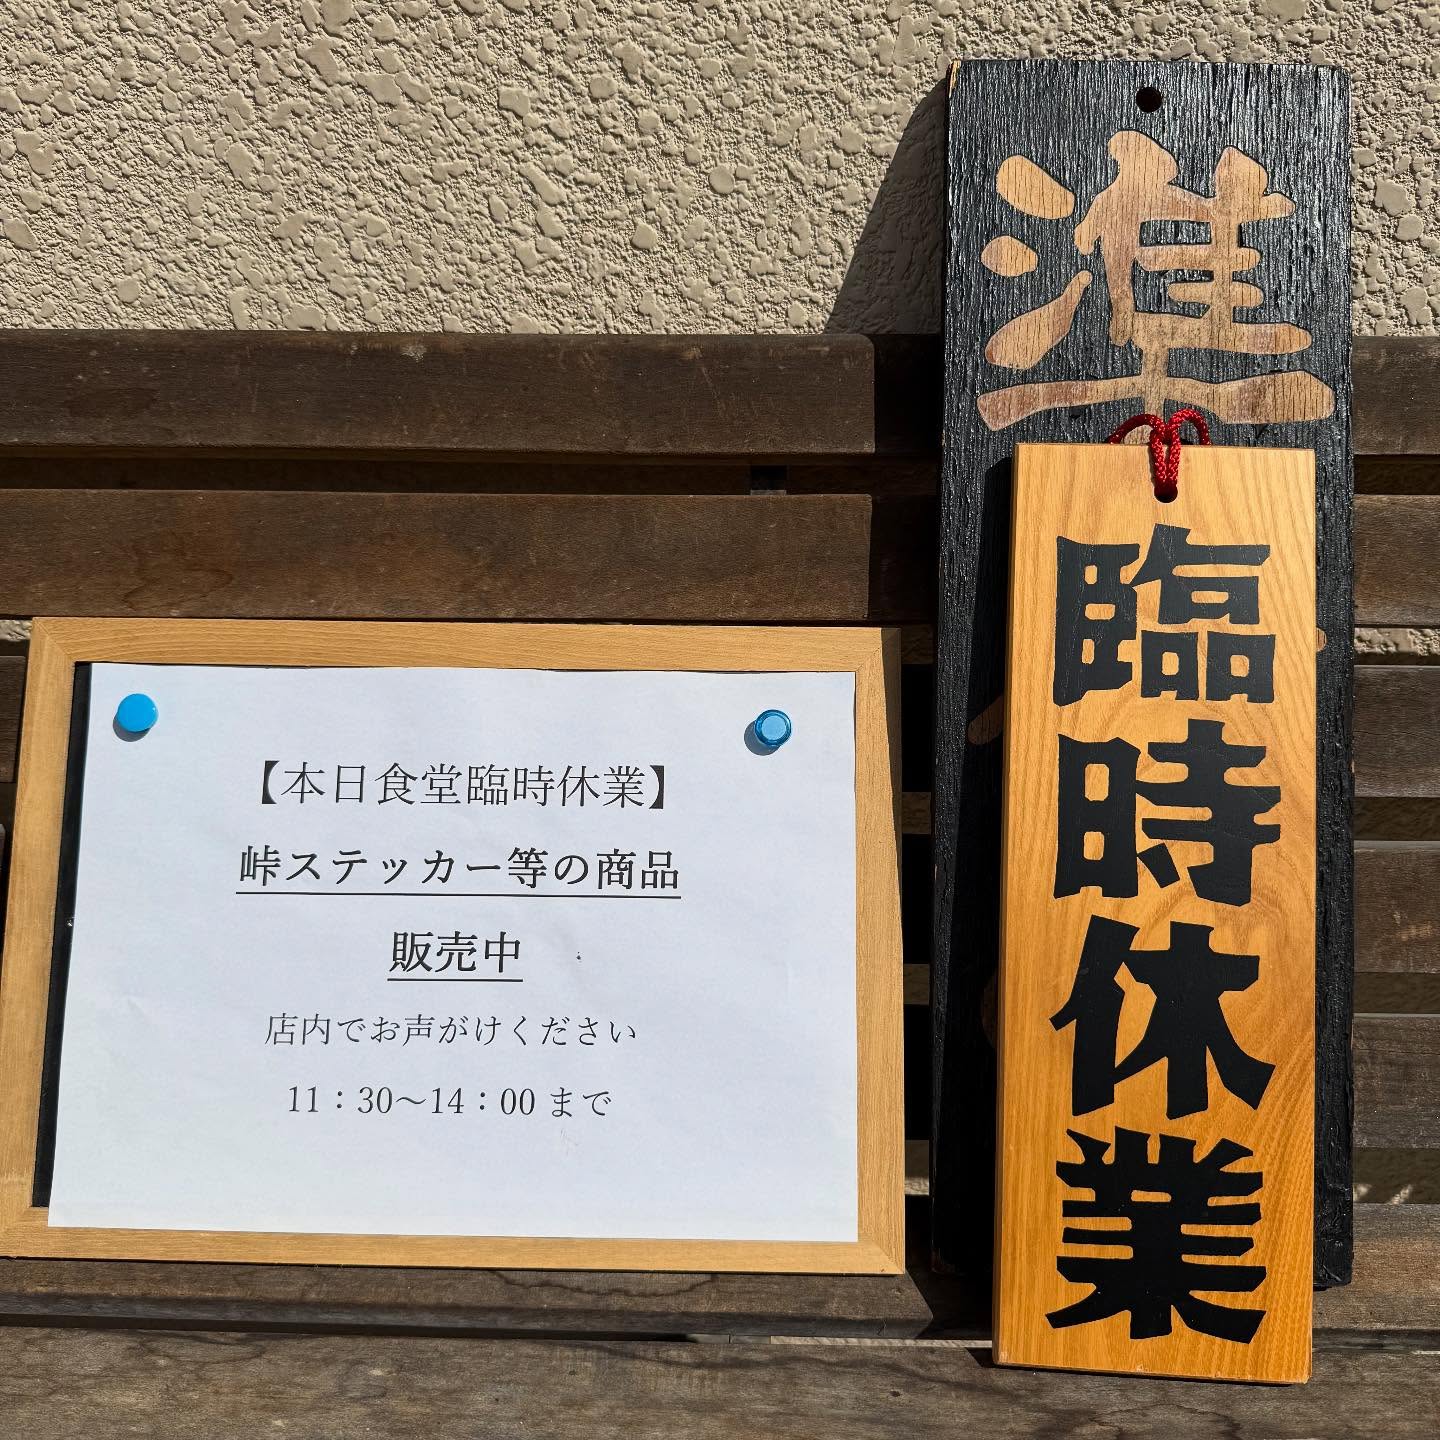 【本日食堂臨時休業】
峠ステッカー等の商品
販売中
店内でお声がけください
11：30～14：00まで
準
臨時休業